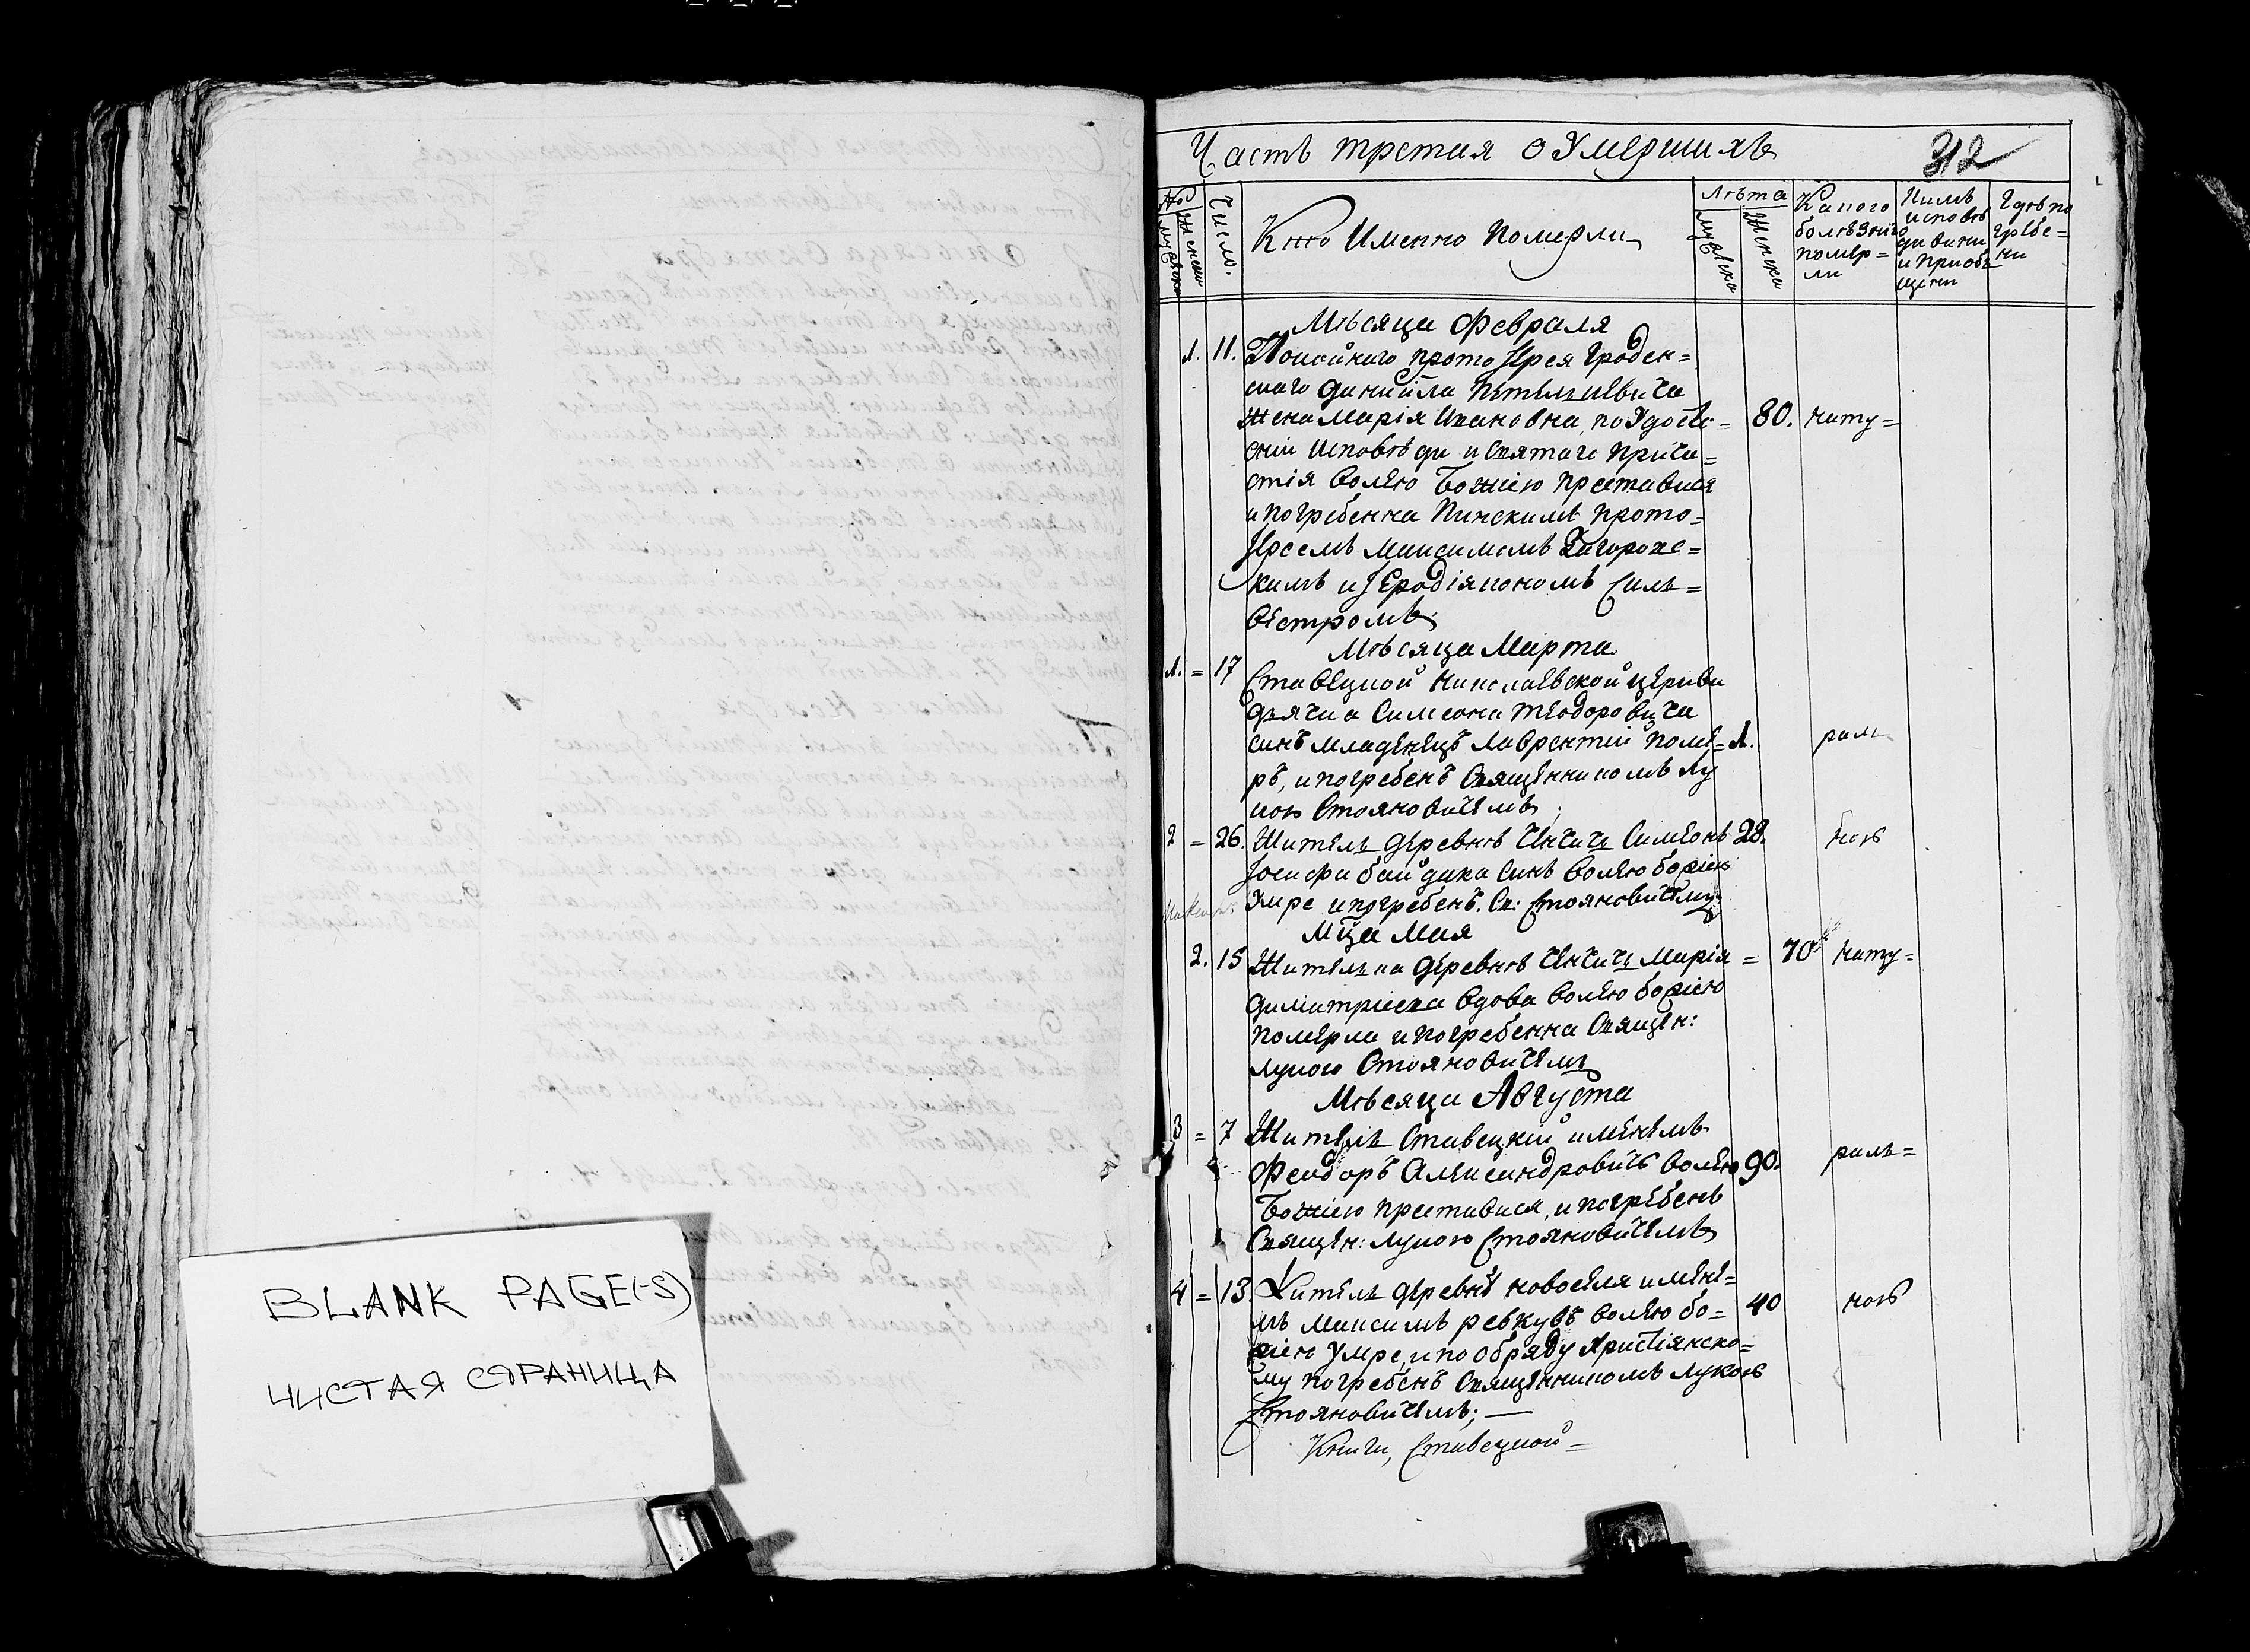 BLANK PAGE(-S)
ЧИСТАЯ СТРАНИЦА
Часть третия о Умершихъ
312
№
мужеска
женска
Число.
Кто Имено Померли
Лѣта
мужеска
женска
Какого
болѣзнію
помер=
ли
Кимъ
исповѣ
дивани
и приоб
щени
Гдѣ по
гребе=
ни
Мѣсяца Февраля
1. 11. Покойного прото Јерея Гроден=
ского Даниила
жена Марія Ивановна, по Удосто= 80. нату=
єнии Исповѣди и Святаго Прича=
стія волею Божиею преставися
и погребенна Пинскимъ Прото=
Јереемъ Максимомъ
кимъ и Јеродіякономъ Силь=
вестромъ
Мѣсяца Марта
1. = 17 Ставецкой Николаевской церкви
дьячка Симеона Теодоровича
синъ младенецъ Лаврентий поме= 1.
ръ, и погребенъ Священникомъ Лу
кою Стояновичемъ;
2 = 26. Житель деревнѣ Ченчичь Симеонъ 28.
Јосифа Байдака синъ волею божіею
Умре и погребенъ. Св: Стояновичемъ
Мца Мая
2. 15 Жителька деревнѣ Ченчичь Марія = 70 нату=
Димитриева вдова волею божіею
померла и погребенна Священ:
Лукою Стояновичемъ
Мѣсяца Августа
3 = 7 Житель Ставецкий именемъ
Феодоръ Александровичъ волею 90.
Божиею преставися, и погребенъ
Священ: Лукою Стояновичемъ
4 = 13. Житель деревнѣ Новоселя имене=
мъ Максимъ Ревкувъ волею бо= 40
жіею умре, и по обряду Христіянско=
му погребенъ Священникомъ Лукою
Стояновичемъ; —
Книги, Ставецкой =